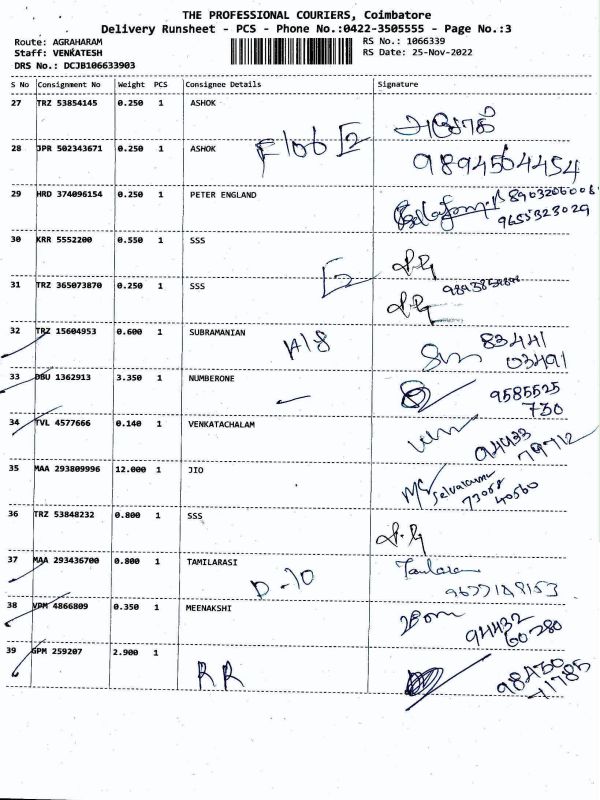 THE PROFESSIONAL COURIERS, Coimbatore
Delivery Runsheet - PCS - Phone No.:0422-3505555 - Page No.:3
Route: AGRAHARAM
Staff: VENKATESH
DRS No.: DCJB106633903
RS No.: 1066339
RS Date: 25-Nov-2022
S No Consignment No Weight PCS Consignee Details Signature
27 TRZ 53854145 0.250 1 ASHOK
28 JPR 502343671 0.250 1 ASHOK 9894564454
29 HRD 374096154 0.250 1 PETER ENGLAND
9655323029
30 KRR 5552200 0.550 1 SSS
31 TRZ 365073870 0.250 1 SSS
32 TRZ 15604953 0.600 1 SUBRAMANIAN A18 83441
03491
33 DBU 1362913 3.350 1 NUMBERONE 9585525
730
34 TVL 4577666 0.140 1 VENKATACHALAM 94433
79712
35 MAA 293809996 12.000 1 JIO
73058
40560
36 TRZ 53848232 0.800 1 SSS
37 MAA 293436700 0.800 1 TAMILARASI D-10
38 VPM 4866809 0.350 1 MEENAKSHI 94432
60280
39 GPM 259207 2.900 1 RR